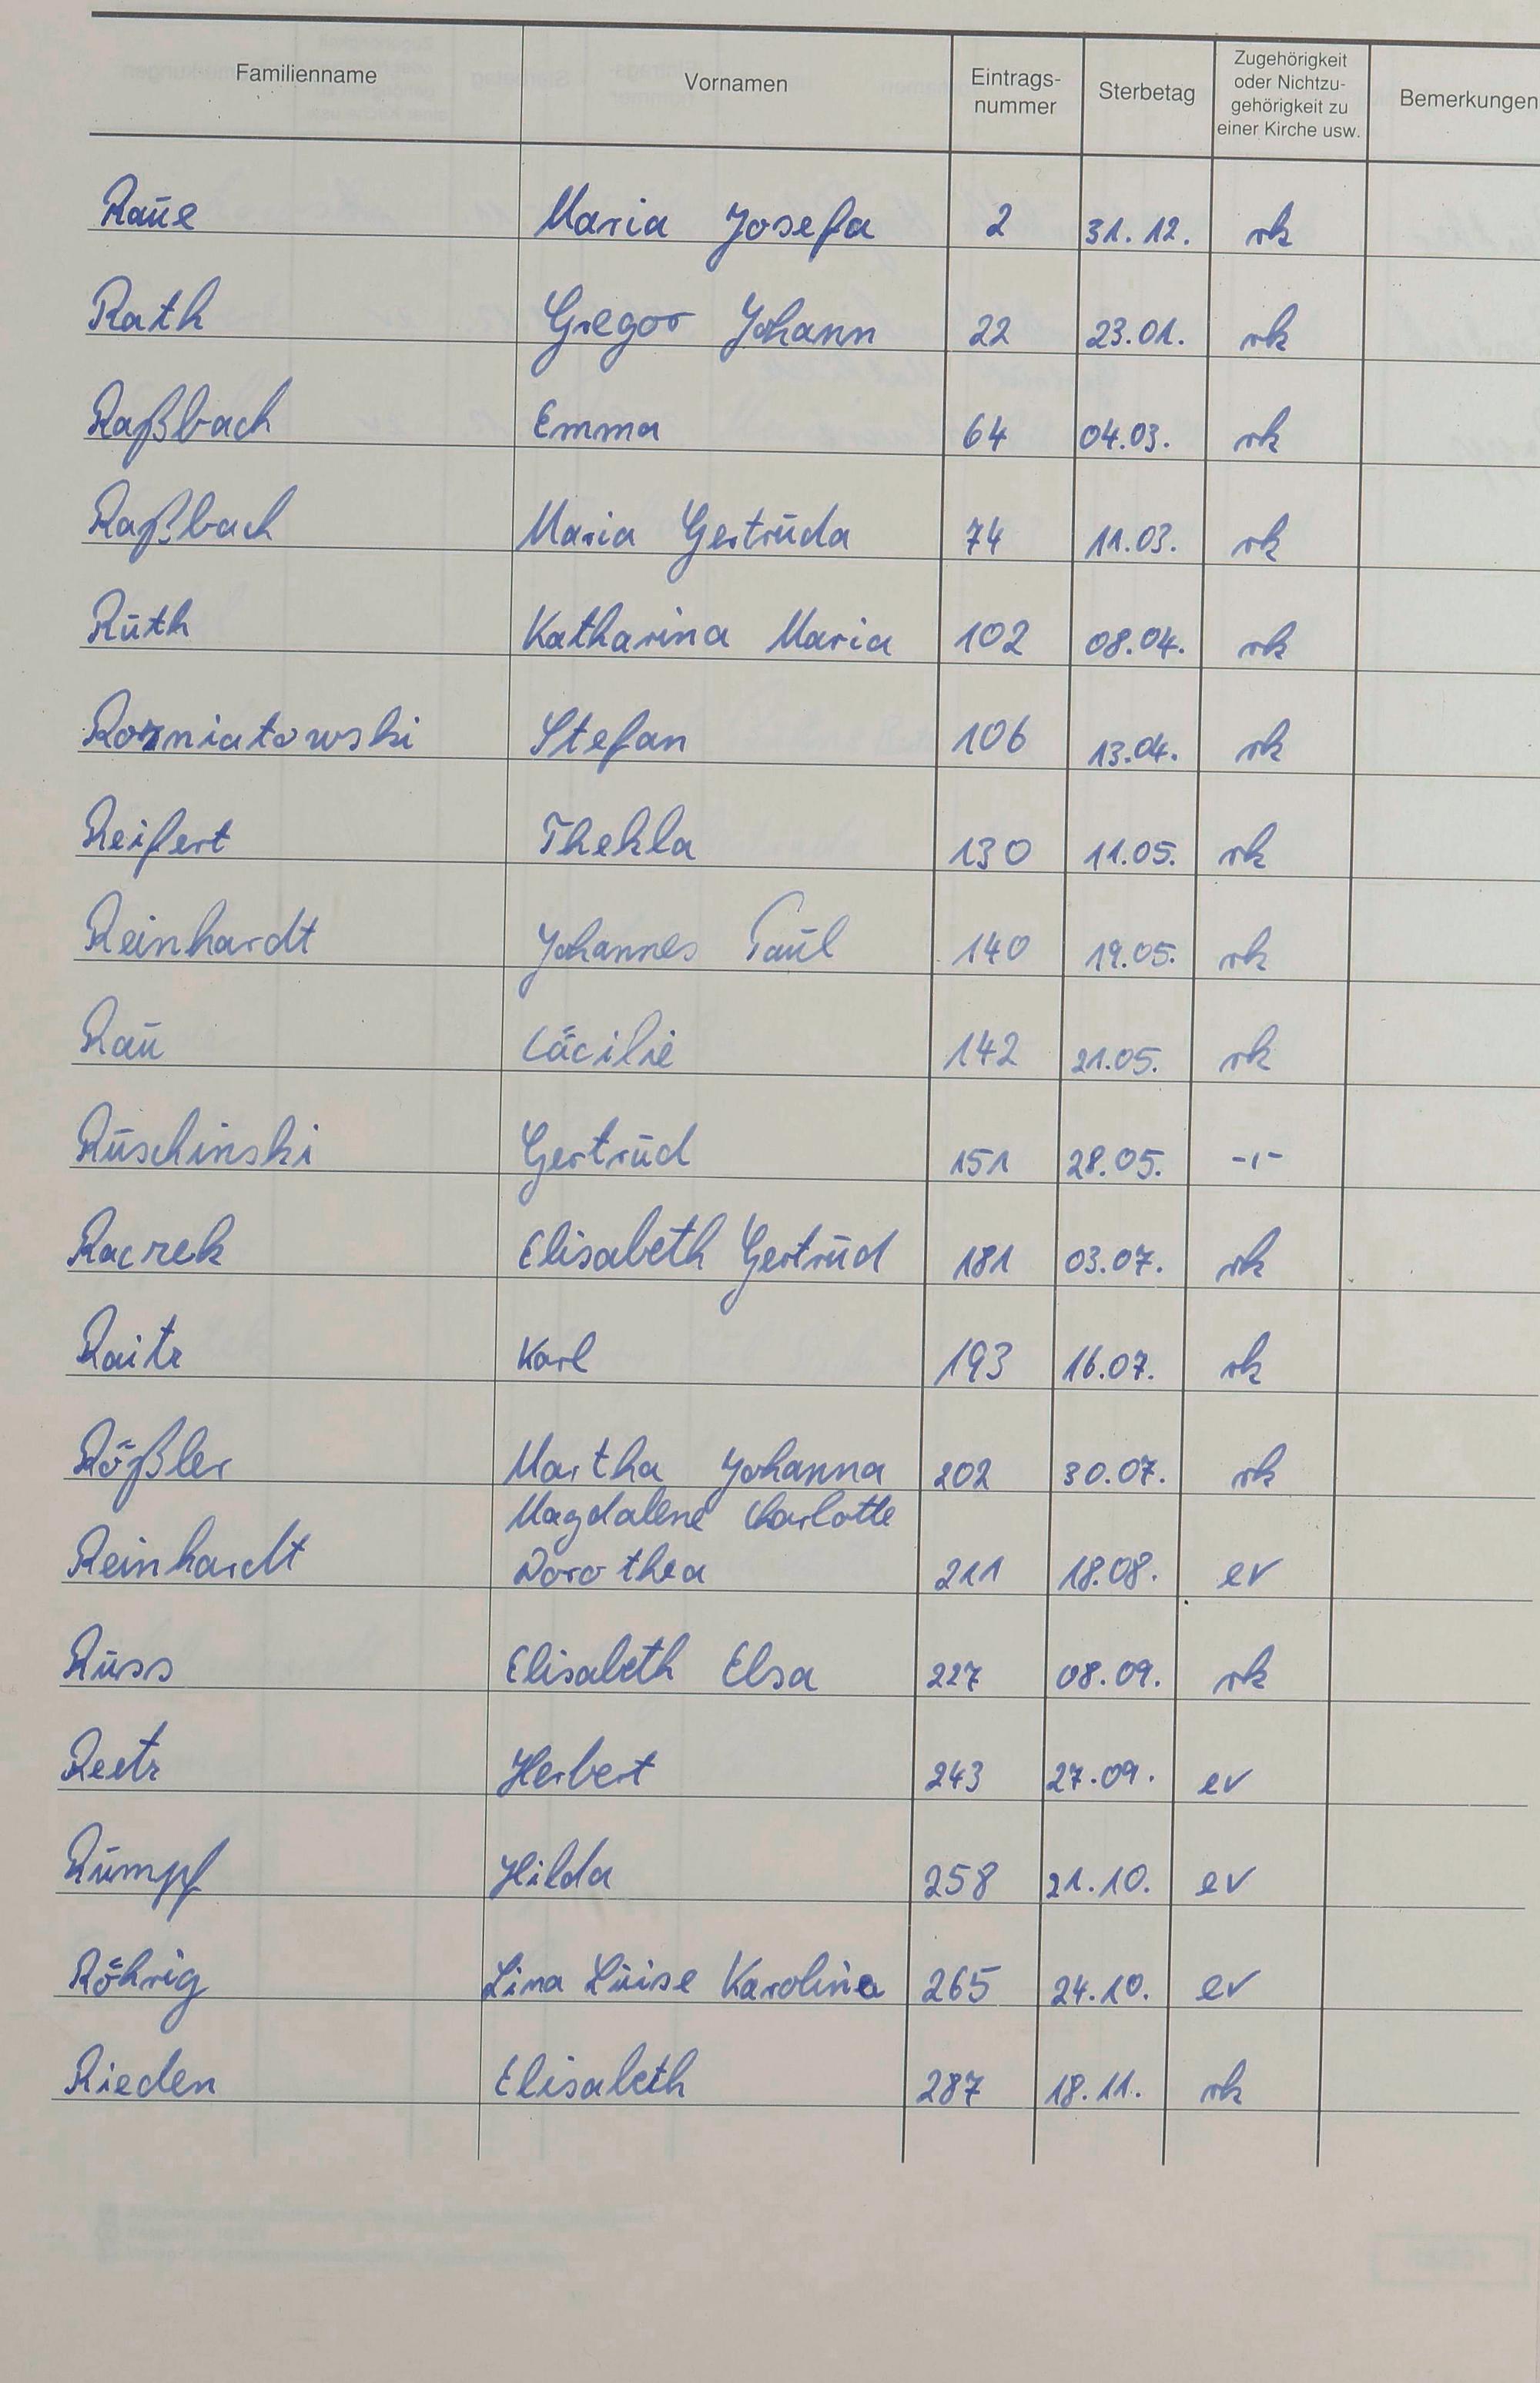 Familienname Vornamen Eintrags-nummer Sterbetag Zugehörigkeit oder Nichtzu-gehörigkeit zu einer Kirche usw. Bemerkungen
Raue Maria Josefa 2 31.12. rk
Rath Gregor Johann 22 23.01. rk
Raßbach Emma 64 04.03. rk
Raßbach Maria Gertruda 74 11.03. rk
Ruth Katharina Maria 102 08.04. rk
Rozniatowski Stefan 106 13.04. rk
Reifert Thekla 130 11.05. rk
Reinhardt Johannes Paul 140 19.05. rk
Rau Cäcilie 142 21.05. rk
Ruschinski Gertrud 151 28.05. -,-
Raczek Elisabeth Gertrud 181 03.07. rk
Raitz Karl 193 16.07. rk
Rößler Martha Johanna 202 30.07. rk
Magdalene Charlotte
Reinhardt Dorothea 211 18.08. ev
Russ Elisabeth Elsa 227 08.09. rk
Reetz Herbert 243 27.09. ev
Rumpf Hilda 258 21.10. ev
Röhrig Lina Luise Karoline 265 24.10. ev
Rieden Elisabeth 287 18.11. rk